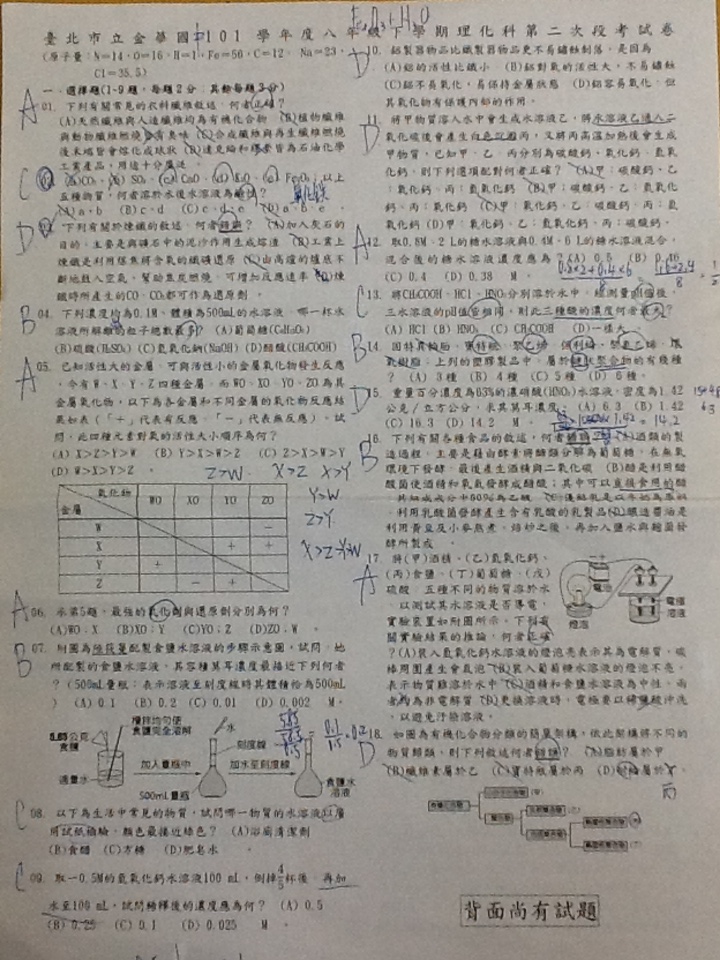 臺北市立金華國中101 學年度八年級下學期理化科第二次段考試卷
(原子量:N=14,O=16,H=1,Fe=56,C=12, Na=23,
Cl=35.5)
一、選擇題(1-9題,每題2分;其餘每題3分)
A 01. 下列有關常見的衣料纖維敘述,何者正確?
(A)天然纖維與人造纖維均為有機化合物 (B)植物纖維
與動物纖維燃燒 有臭味 (C)合成纖維與再生纖維燃燒
後末端皆會熔化成球狀 (D)達克綸和嫘縈皆為石油化學
工業產品,用途十分廣泛。
C (a)CO₂、(b)SO₂、(c)CaO、(d) O、(e) Fe₂O₃;以上
五種物質,何者溶於水後水溶液為鹼性?
(A)a、b (B)c、d (C)c、d、e (D)a、b、e。
氧化鐵
D 03. 下列有關於煉鐵的敘述,何者錯誤? (A)加入灰石的
目的,主要是與礦石中的泥沙作用生成熔渣 (B)工業上
煉鐵是利用煤焦將含鐵的鐵礦還原 (C)由高溫的爐底不
斷地鼓入空氣,幫助焦炭燃燒,可增加反應速率 (D)煉
鐵時所產生的CO、CO₂都可作為還原劑。
B 04. 下列濃度均為0.1M、體積為500mL的水溶液,哪一杯水
溶液所解離的粒子總數最多? (A)葡萄糖(C₆H₁₂O₆)
(B)硫酸(H₂SO₄) (C)氫氧化鈉(NaOH) (D)醋酸(CH₃COOH)
A 05. 已知活性大的金屬,可與活性小的金屬氧化物發生反應
。今有W、X、Y、Z四種金屬,而WO、XO、YO、ZO為其
金屬氧化物,以下為各金屬和不同金屬的氧化物反應結
果如表(「+」代表有反應,「-」代表無反應)。試
問,此四種元素對氧的活性大小順序為何?
(A) X>Z>Y>W (B) Y>X>W>Z (C) Z>X>W>Y
(D) W>X>Y>Z 。
Z>W X>Z X>Y
氧化物 WO XO YO ZO
金屬
W -
X + +
Y +
Z - +
Y>W
Z>Y
X>Z>Y>W
A 06. 承第5題,最強的氧化劑與還原劑分別為何?
(A)WO;X (B)XO;Y (C)YO;Z (D)ZO;W 。
B 07. 附圖為 配製食鹽水溶液的步驟示意圖,試問,她
所配製的食鹽水溶液,其容積莫耳濃度最接近下列何者
?(500mL量瓶:表示溶液至刻度線時其體積恰為500mL
) (A) 0.1 (B) 0.2 (C) 0.01 (D) 0.002 M。
5.85公克
食鹽
攪拌均勻使
食鹽完全溶解
水
刻度線
適量水
加入量瓶中
加水至刻度線
500mL量瓶
食鹽水
溶液
C 08. 以下為生活中常見的物質,試問哪一物質的水溶液以廣
用試紙檢驗,顏色最接近綠色? (A)浴廁清潔劑
(B)食醋 (C)方糖 (D)肥皂水 。
C 09. 取一0.5M的氫氧化鈣水溶液100 mL,倒掉4/5杯後,再加
水至100 mL,試問稀釋後的濃度應為何? (A) 0.5
(B) 0.25 (C) 0.1 (D) 0.025 M 。
D 10. 鋁製器物品比鐵製器物品更不易鏽蝕剝落,是因為
(A)鋁的活性比鐵小 (B)鋁對氧的活性大,不易鏽蝕
(C)鋁不易氧化,易保持金屬狀態 (D)鋁容易氧化,但
其氧化物有保護內部的作用。
將甲物質溶入水中會生成水溶液乙,將水溶液乙通入二
氧化碳後會產生白色沉澱丙,又將丙高溫加熱後會生成
甲物質,已知甲、乙、丙分別為碳酸鈣、氧化鈣、氫氧
化鈣,則下列選項配對何者正確? (A)甲:碳酸鈣,乙
:氧化鈣,丙:氫氧化鈣 (B)甲:碳酸鈣,乙:氫氧化
鈣,丙:氧化鈣 (C)甲:氧化鈣,乙:碳酸鈣,丙:氫
氧化鈣 (D)甲:氧化鈣,乙:氫氧化鈣,丙:碳酸鈣。
A 12. 取0.8M、2 L的糖水溶液與0.4M、6 L的糖水溶液混合,
混合後的糖水溶液濃度應為?(A) 0.5 (B) 0.46
(C) 0.4 (D) 0.38 M 。
C 13. 將CH₃COOH、HCl、HNO₃分別溶於水中,經測量pH值後,
三水溶液的pH值皆相同,則此三種酸的濃度何者最大?
(A) HCl (B) HNO₃ (C) CH₃COOH (D)一樣大。
B 14.
、上列的塑膠製品中,屬於鏈狀聚合物的有幾種
? (A) 3種 (B) 4種 (C) 5種 (D) 6種。
D 15. 重量百分濃度為63%的濃硝酸(HNO₃)水溶液,密度為1.42
公克/立方公分,求其莫耳濃度: (A) 6.3 (B) 1.42
(C) 16.3 (D) 14.2 M 。
= 14.2
B 16. 下列有關各種食品的敘述,何者錯誤?(A)酒類的製
造過程,主要是藉由酵素將醣類分解為葡萄糖,在無氧
環境下發酵,最後產生酒精與二氧化碳 (B)醋是利用醋
酸菌使酒精和氧氣發酵成醋酸;其中可以直接食用的醋
利用乳酸菌發酵產生含有乳酸的乳製品(D)釀造醬油是
利用黃豆及小麥蒸煮、焙炒之後,再加入鹽水與麴菌發
酵所製成 。
A 17. 將(甲)酒精、(乙)氫氧化鈣、
(丙)食鹽、(丁)葡萄糖、(戊)
硫酸,五種不同的物質溶於水
,以測試其水溶液是否導電,
實驗裝置如附圖所示。下列有
關實驗結果的推論,何者正確
?(A)裝入氫氧化鈣水溶液的燈泡亮表示其為電解質,碳
棒周圍產生會氣泡 (B)裝入葡萄糖水溶液的燈泡不亮,
表示物質難溶於水中 (C)酒精和食鹽水溶液為中性,兩
者均為非電解質 (D)更換溶液時,電極要以稀鹽酸沖洗
,以避免汙染溶液。
電池
燈泡
電極
溶液
D 18. 如圖為有機化合物分類的簡單架構,依此架構將不同的
物質歸類,則下列敘述何者錯誤? (A)脂肪屬於甲
(B)纖維素屬於乙 (C)寶特瓶屬於丙 (D) 屬於丁
丙
背面尚有試題